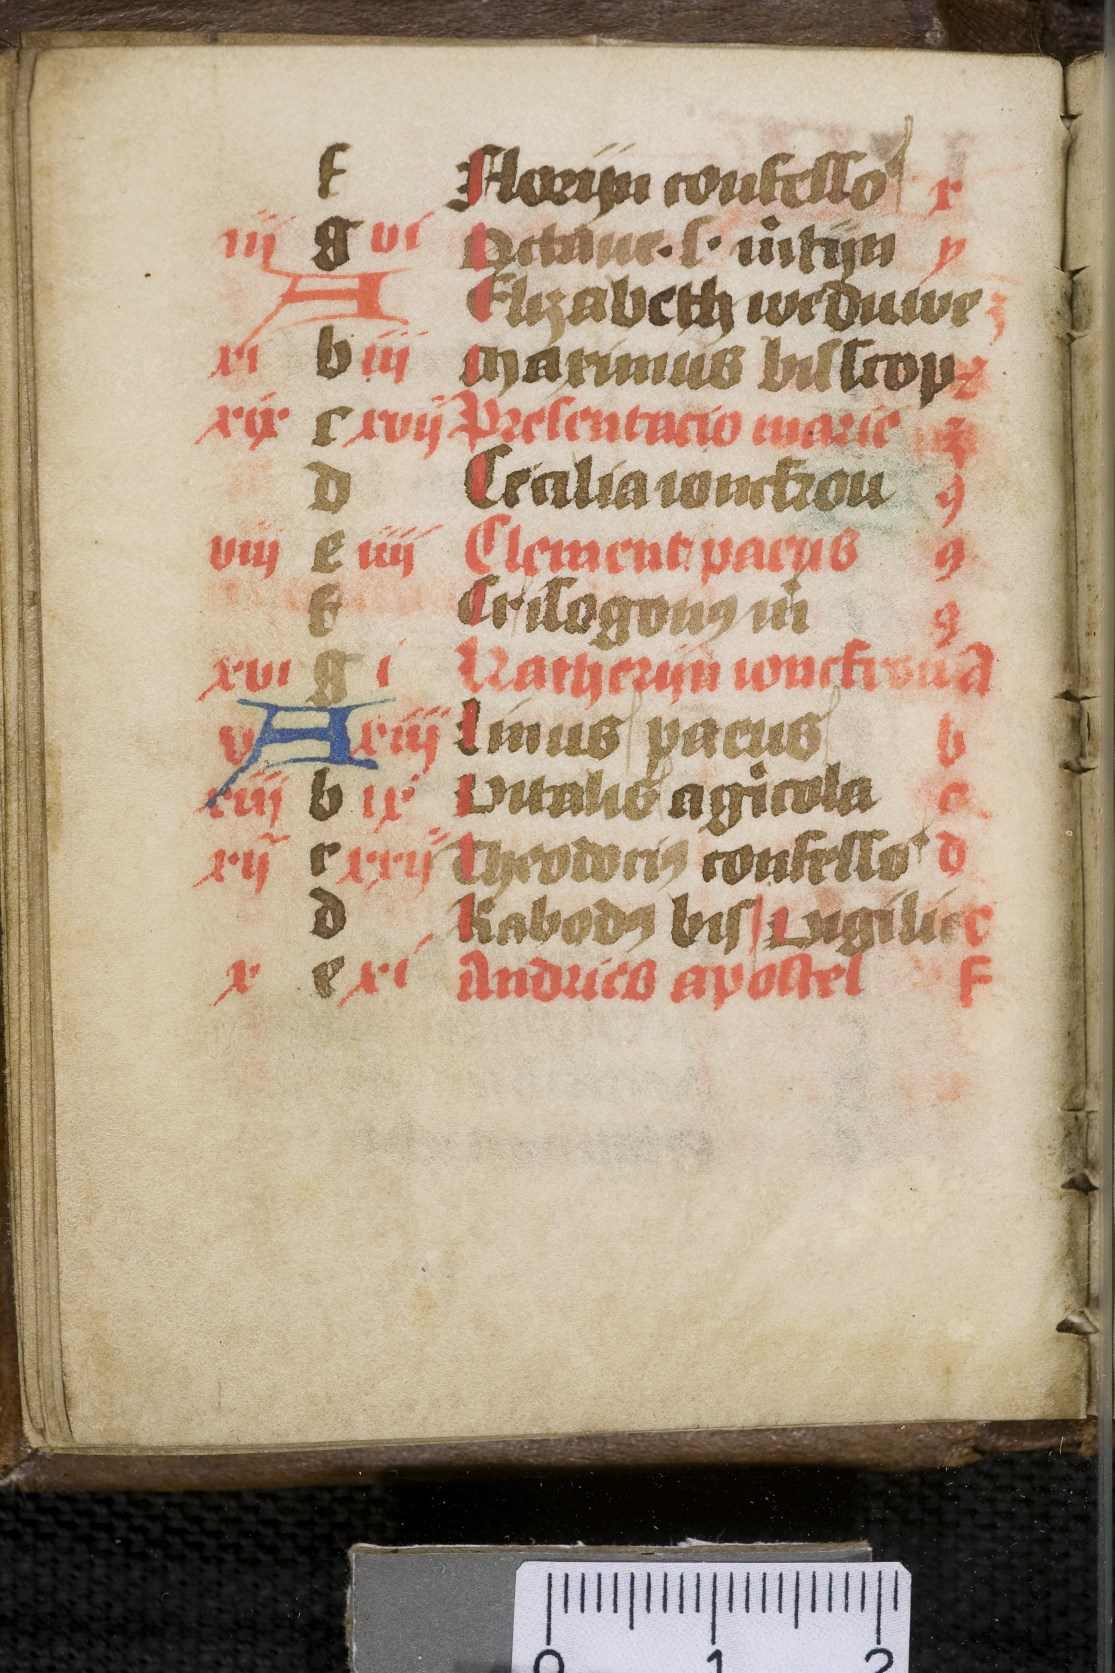 f Florijn confesso⁹ x
iij g vi Octaue · s · m̊tijn y
A Elyzabeth weduwe z
xi b iij Maximus bisscop
xix c xvij Presentacio marie
d Cecilia ionckfrou 9
viij e iiij Clement paeus 9
f Crisogonus m̊ 9
xvi g i Katherijn ionckfrou A
v A xiij linus paeus b
xiij b ix Vitalis agricola c
xij c xxij Theodocius confesso⁹ d
d Rabodus bis vigilie e
x e xi Andries apostel F
0 1 2